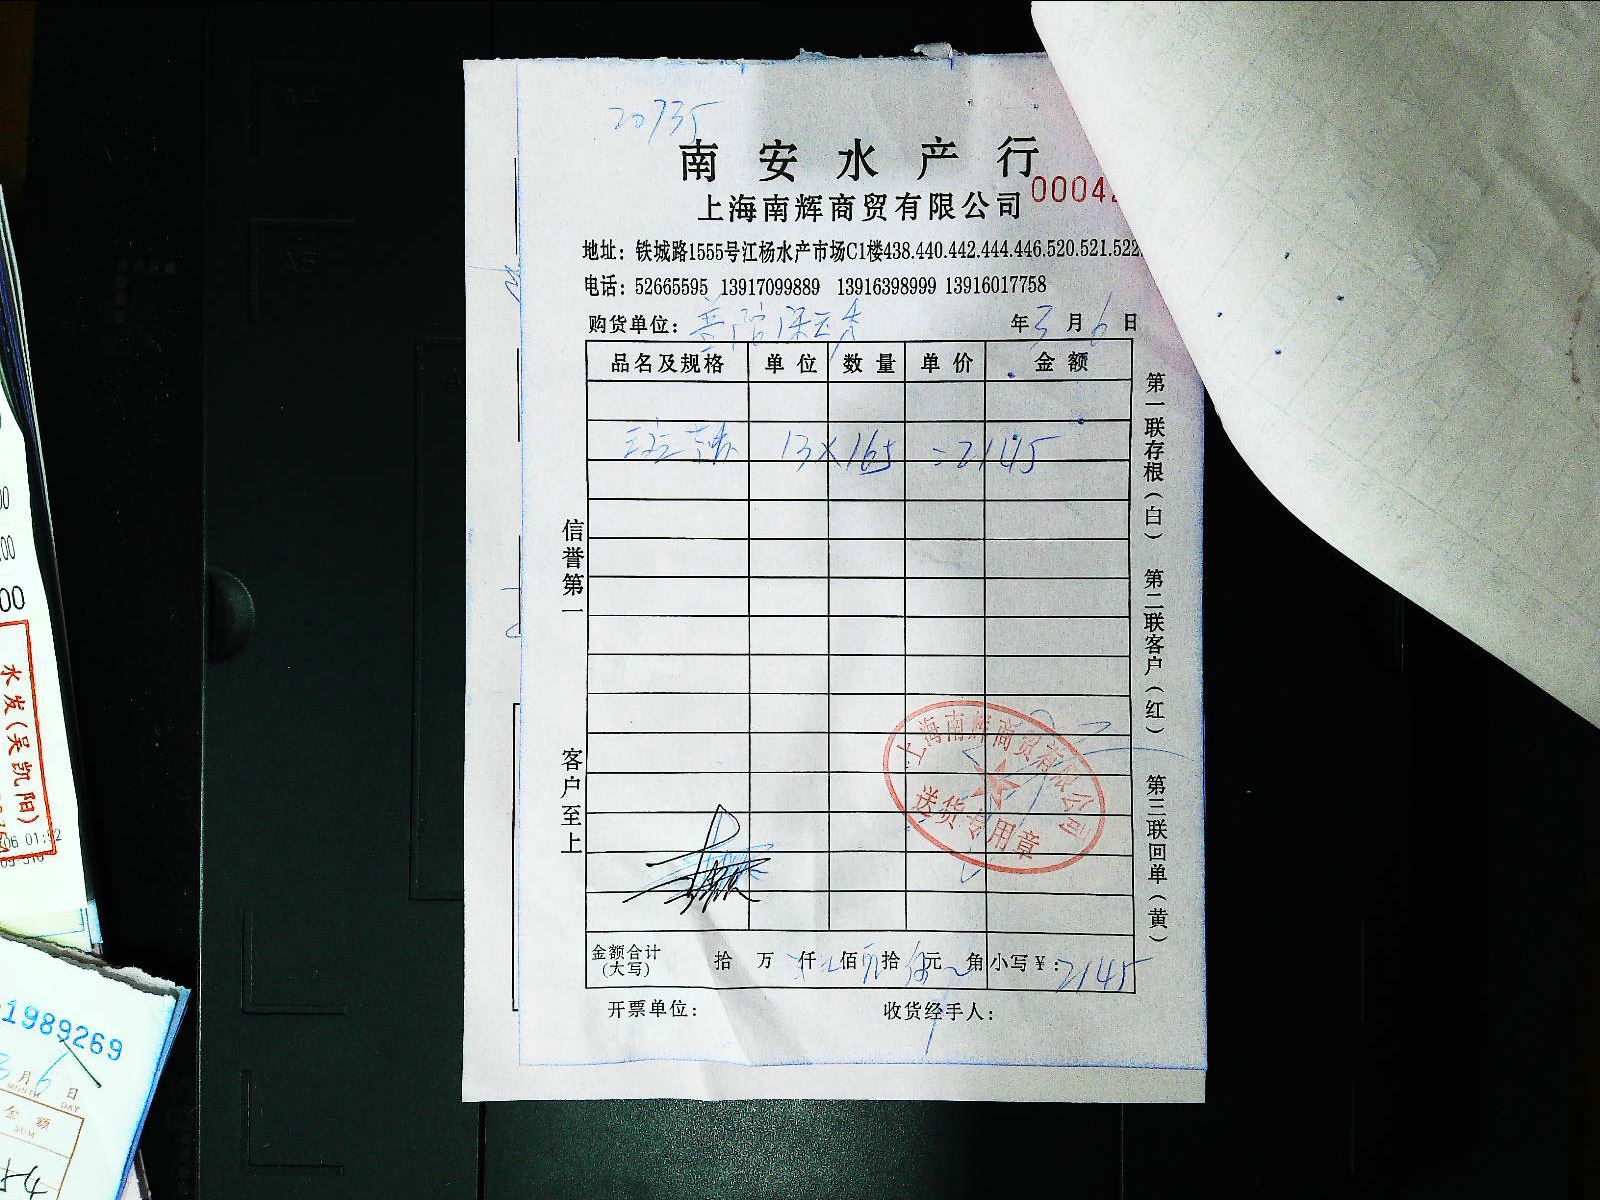 20735
南安水产行
上海南辉商贸有限公司
0004
地址：铁城路1555号江杨水产市场C1楼438.440.442.444.446.520.521.522.
电话：52665595 13917099889 13916398999 13916017758
购货单位：
年3月6日
品名及规格 单位 数量 单价 金额
13×165 =2145
信誉第一
客户至上
第一联存根（白）
第二联客户（红）
第三联回单（黄）
上海南辉商贸有限公司
送货专用章
金额合计(大写) 拾 万 仟 佰 拾 元 角 小写¥：2145
开票单位：
收货经手人：
00
00
00
水发（吴凯阳）
06 01:
1989269
3月6日
MONTH DAY
金额
SUM